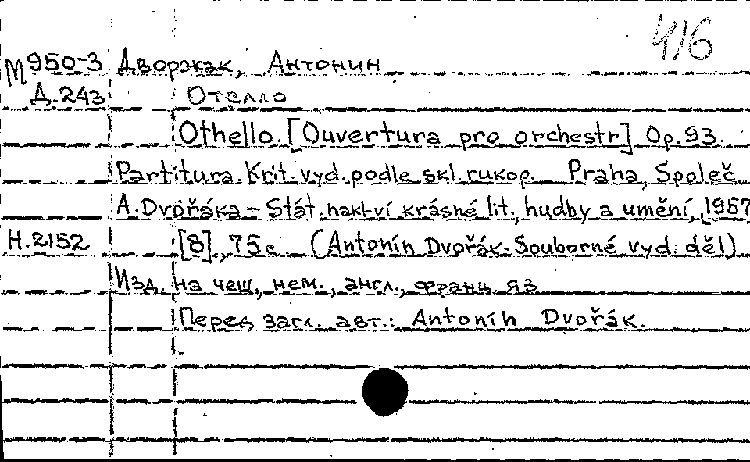 416
М950-3 Дворжак, Антонин
Д.243 Отелло
Othello [Ouvertura pro orchestr] Op. 93.
Partitura. Krit. vyd. podle skl. rukop. Praha, Společ.
A. Dvořáka - Stát. nakl-ví krásné lit., hudby a umění, 1957
H.2152 [8], 75 c. (Antonín Dvořák. Souborné vyd. děl)
Изд. на чеш., нем., англ., франц. яз
Перед загл. авт.: Antonín Dvořák.